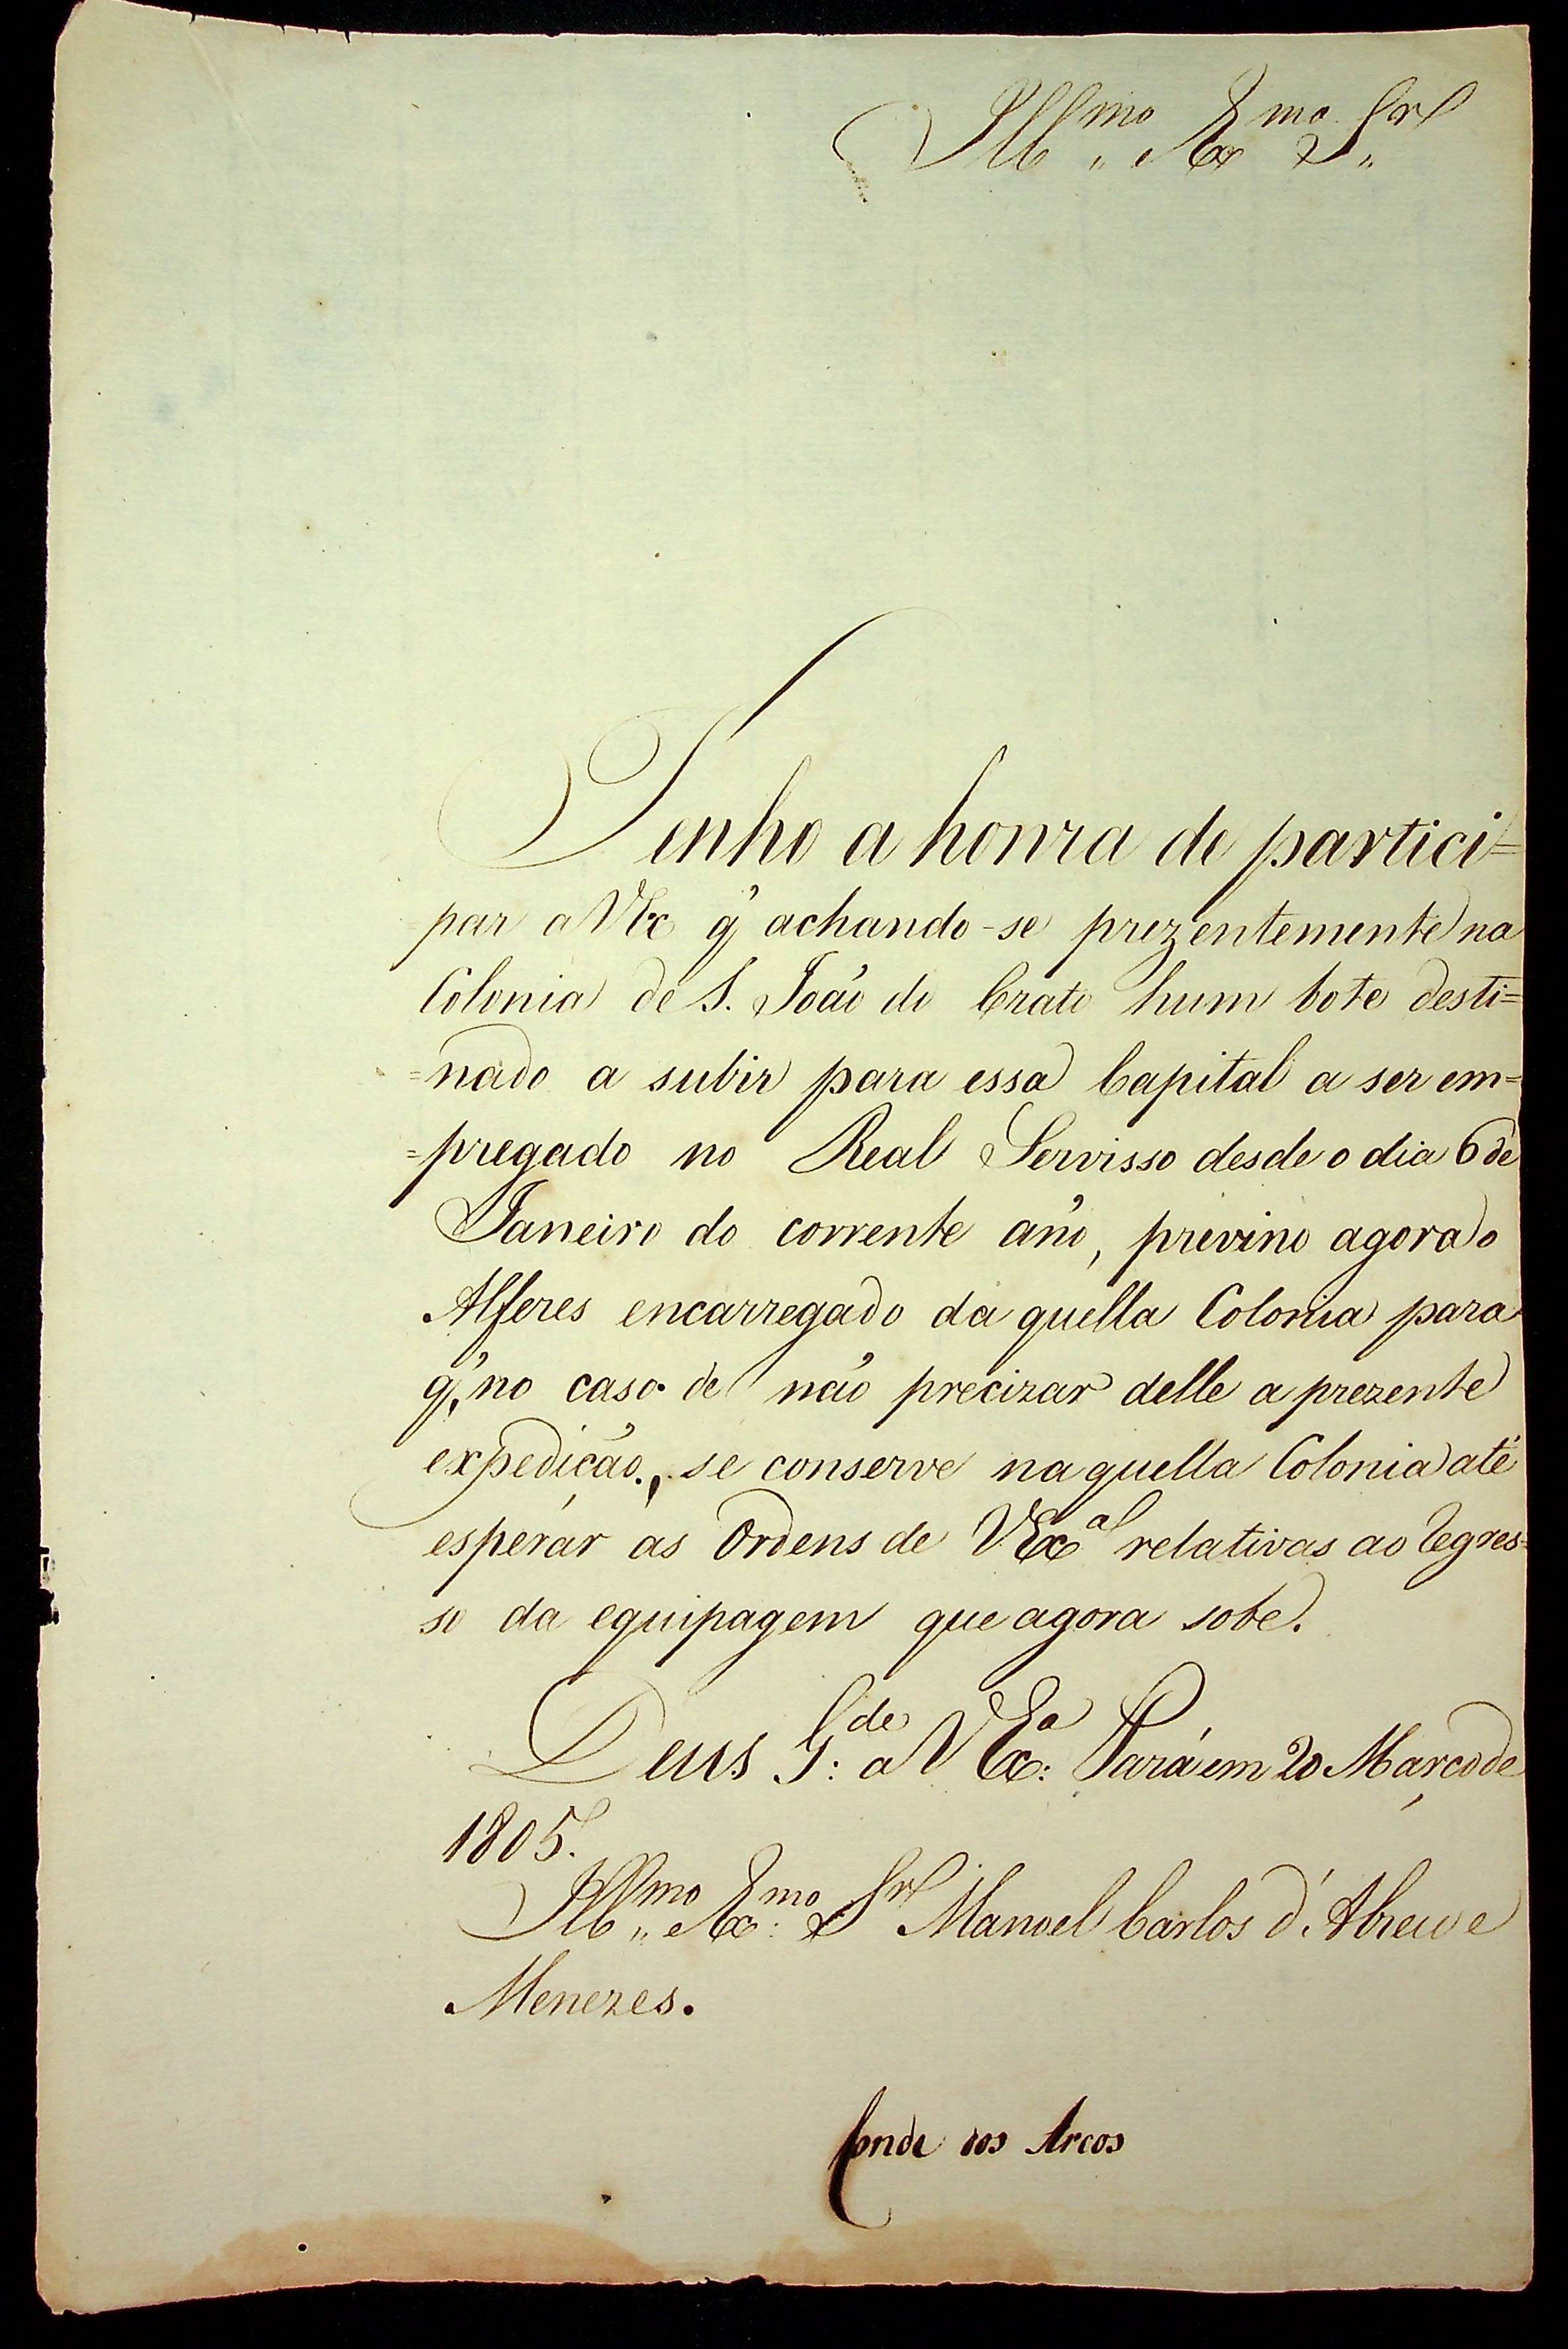 Ill.mo e Ex.mo Snr.
Tenho a honra de partici=
par a VEx q' achando-se prezentemente na
Colonia de S. João do Crato hum bote desti=
=nado a subir para essa Capital a ser em=
=pregado no Real Servisso desde o dia 6 de
Janeiro do corrente anño, previno agora o
Alferes encarregado da quella Colonia para
q', no caso de não precizar delle a prezente
expedição., se conserve na quella Colonia até
esperár as Ordens de VExa relativas ao Regres=
so da equipagem que agora sobe.
Deus G.de a V Exa: Pará em 20 Março de
1805.
Ill.mo e Ex.mo Snr Manoel Carlos d'Abreu e
Menezes.
Conde dos Arcos